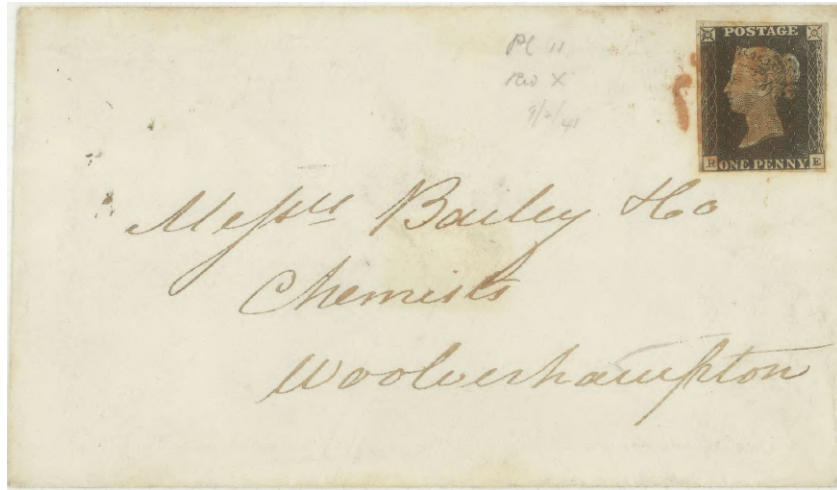 Pl 11
POSTAGE
R ONE PENNY E
Messrs Bailey & Co
Chemists
Woolverhampton